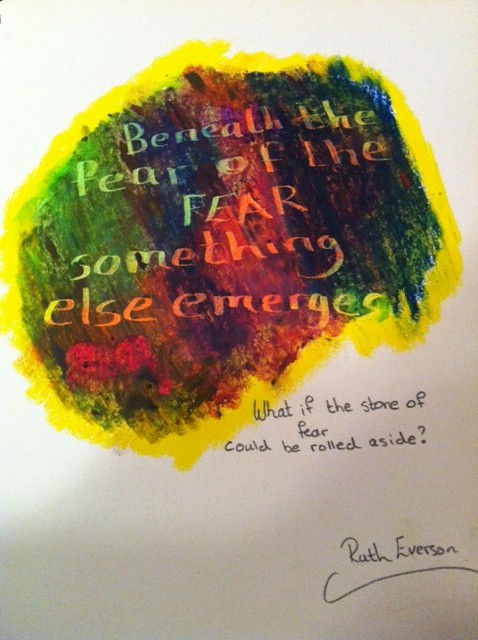 Beneath the
fear of the
FEAR
something
else emerges
What if the stone of
fear
could be rolled aside?
Ruth Everson